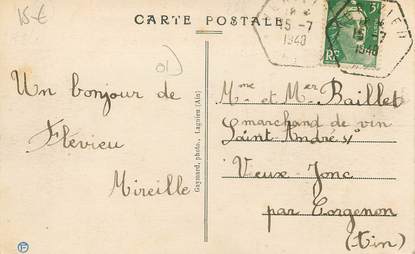 15€
CARTE POSTALE
15-7
1948
15-7
1948
RF
01)
Un bonjour de
Flévieu
Mireille
Gaymard, photo., Lagnieu (Ain)
Mme et Mer Baillet
marchand de vin
Saint André s/
Veux-Jonc
par Corgenon
(Ain)